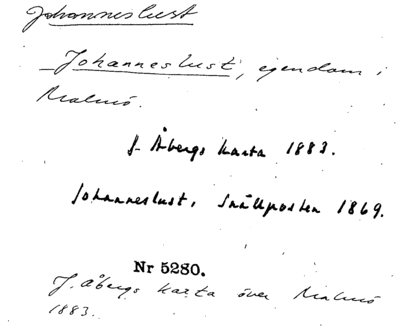 Johanneslust
Johanneslust, egendom i
Malmö.
J. Åbergs karta 1883.
Johanneslust, Snällposten 1869.
Nr 5280.
J. Åbergs karta över Malmö
1883.